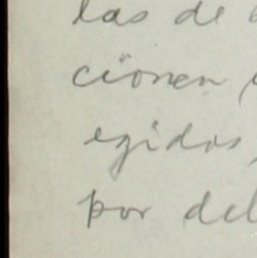 las de
cionen
egidos,
por del